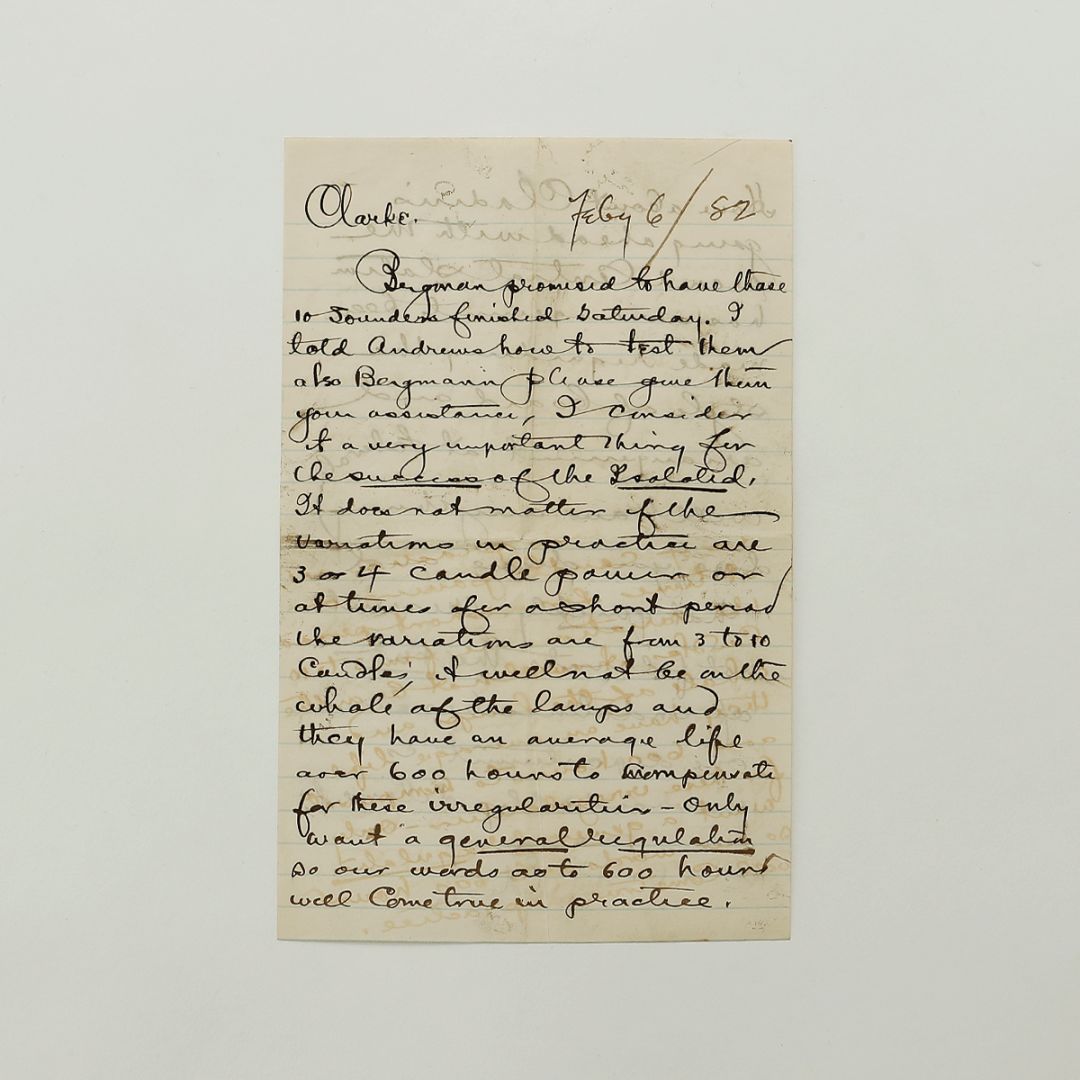 Clarke. Feby 6/82
Bergman promised to have those
10 Sounders finished Saturday. I
told Andrews how to test them
also Bergmann please give them
your assistance, I consider
it a very important thing for
the success of the Isolated.
It does not matter if the
variations in practice are
3 or 4 candle power or
at times for a short period
the variations are from 3 to 10
Candles, it will not be on the
whole of the lamps and
they have an average life
over 600 hours to compensate
for these irregularities - only
want a general regulation
so our words as to 600 hours
will Come true in practice.